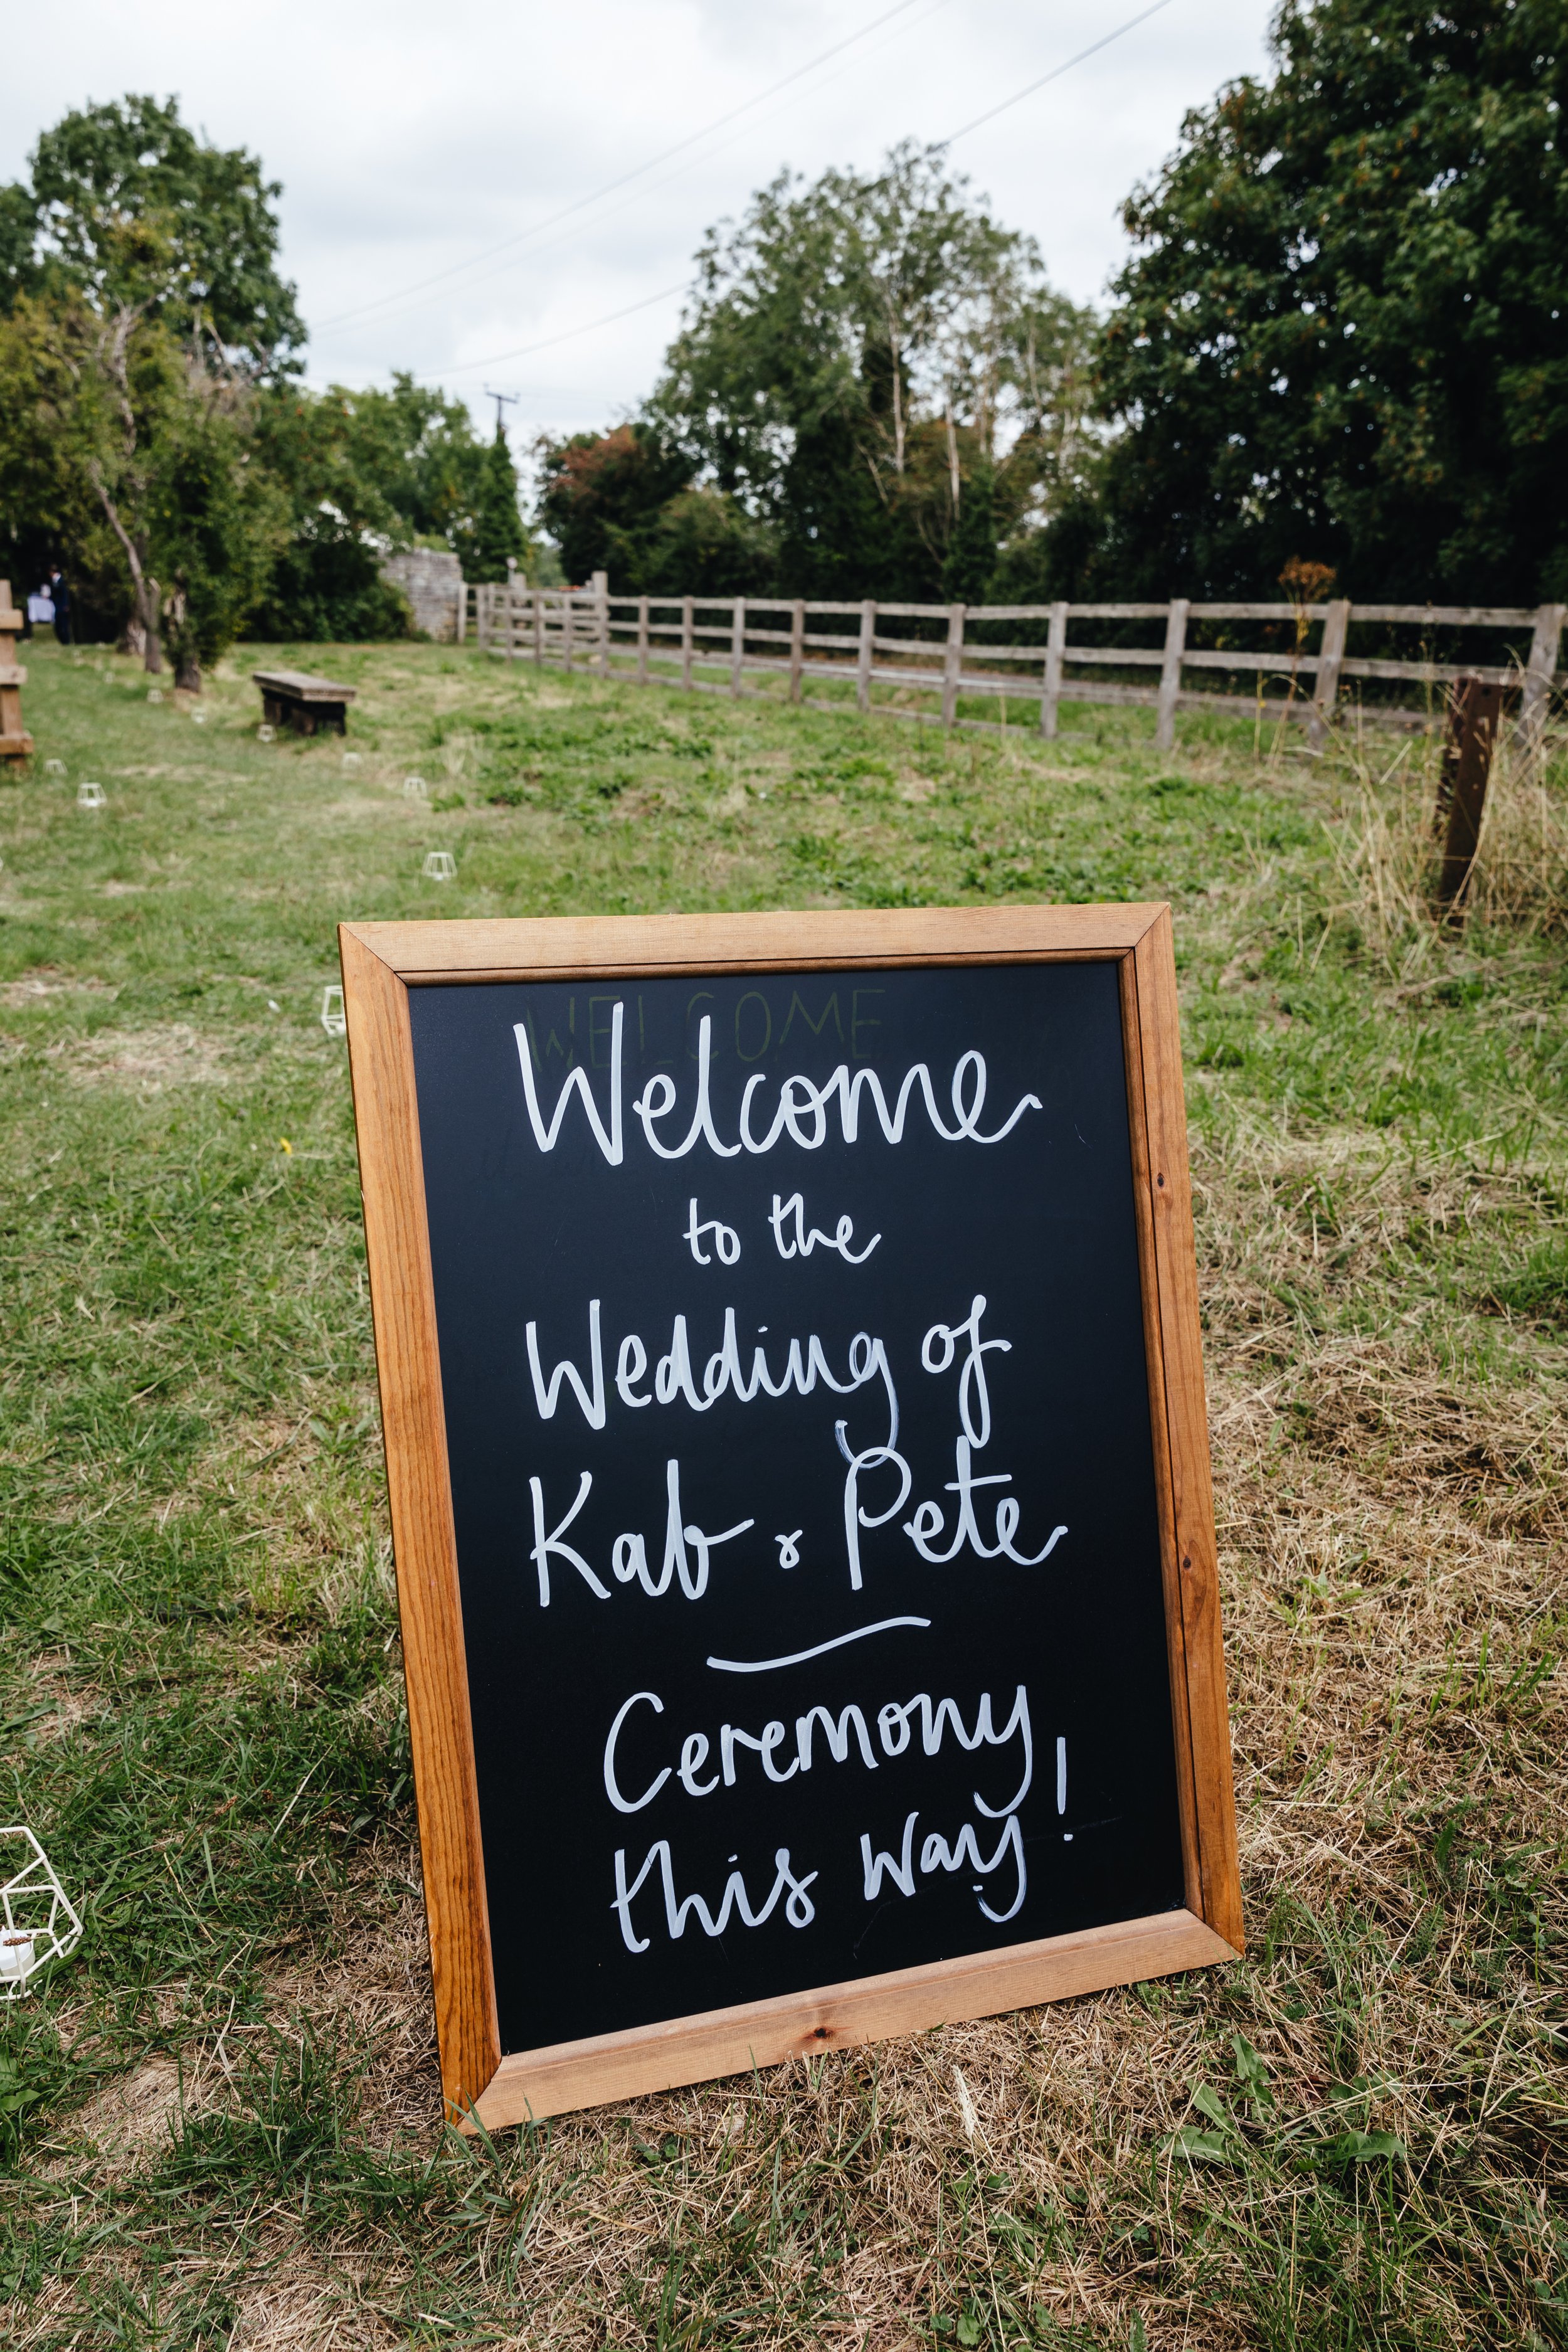 WELCOME
Welcome
to the
Wedding of
Kab & Pete
Ceremony
this way!